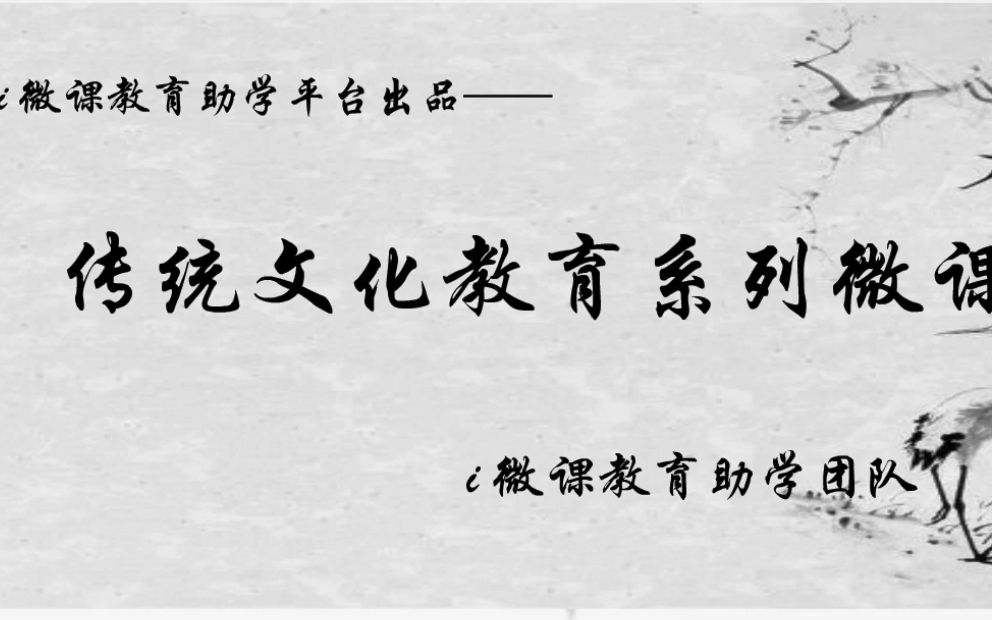 i微课教育助学平台出品——
传统文化教育系列微课
i微课教育助学团队